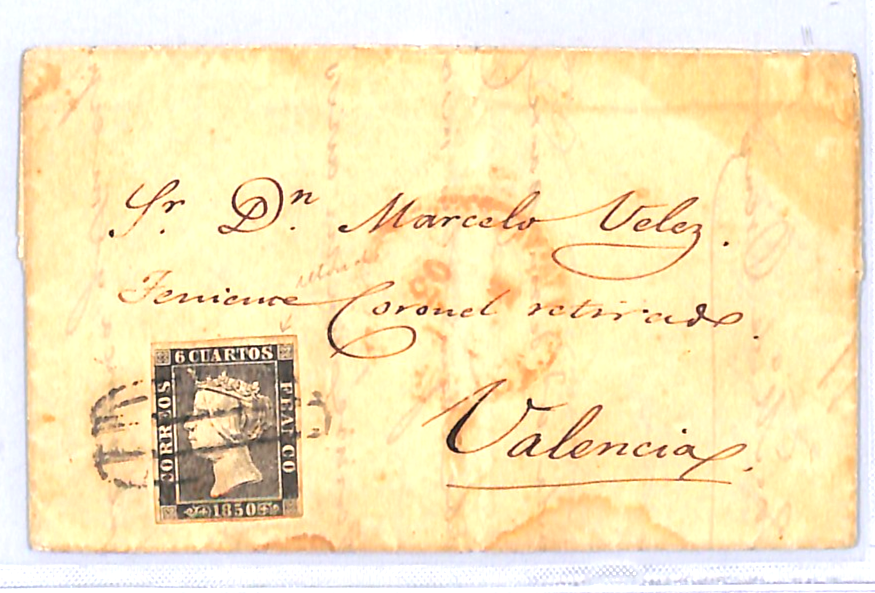 Sr. Dn. Marcelo Velez.
Teniente Coronel retirado.
Valencia.
6 CUARTOS
CORREOS
FRANCO
1850